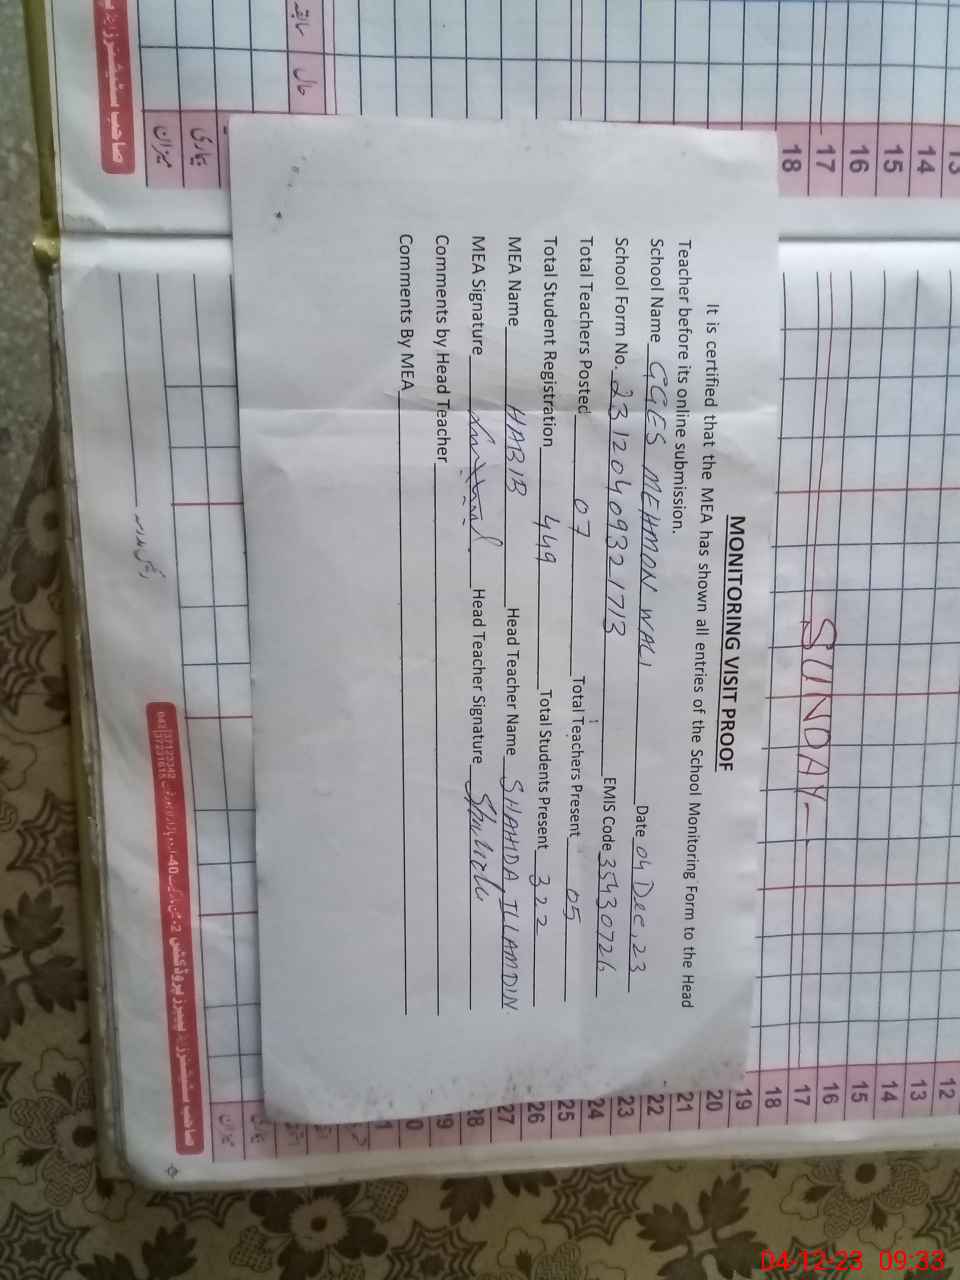 MONITORING VISIT PROOF
It is certified that the MEA has shown all entries of the School Monitoring Form to the Head
Teacher before its online submission.
School Name GGES MEHMON WALI Date 04 Dec, 23
School Form No. 23120409321713 EMIS Code 35430726
Total Teachers Posted 07 Total Teachers Present 05
Total Student Registration 449 Total Students Present 322
MEA Name HABIB Head Teacher Name SHAHIDA ILLAMDIN.
MEA Signature Head Teacher Signature
Comments by Head Teacher
Comments By MEA
SUNDAY
13
14
15
16
17
18
12
13
14
15
16
17
18
19
20
21
22
23
24
25
26
27
28
29
میزان
بیماری
حال
میزان
04-12-23 09:33